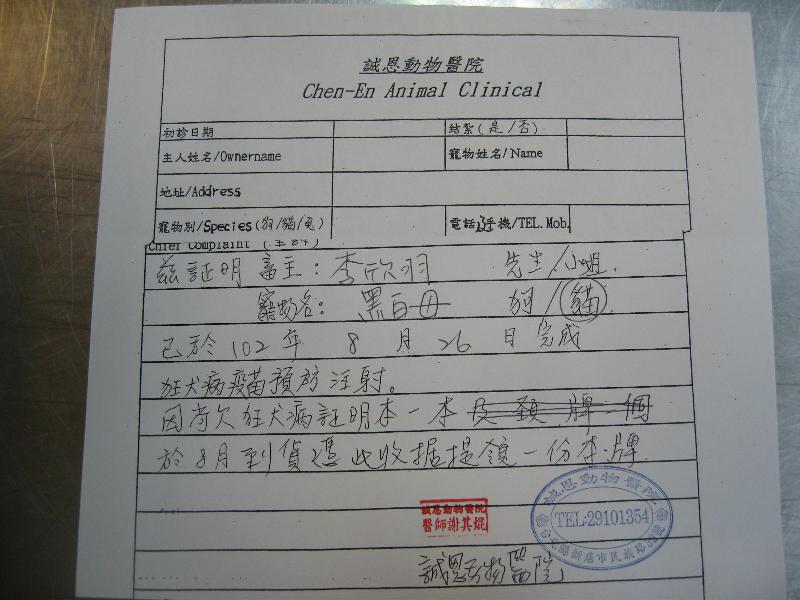 誠恩動物醫院
Chen-En Animal Clinical
初診日期 結紮(是/否)
主人姓名/Ownername 寵物姓名/Name
地址/Address
寵物別/Species(狗/貓/兔) 電話/手機/TEL.Mob.
Chief Complaint (主訴)
茲証明 畜主:李欣羽 先生/小姐.
寵物名: 黑白 狗/貓
已於102年 8月26日完成
狂犬病疫苗預防注射。
因尚欠狂犬病証明本一本及頸牌一個
於8月到貨憑此收据提領一份本.牌
誠恩動物醫院
醫師謝其焜
誠恩動物醫院
TEL:29101354
台北縣新店市民族路
誠恩动物醫院